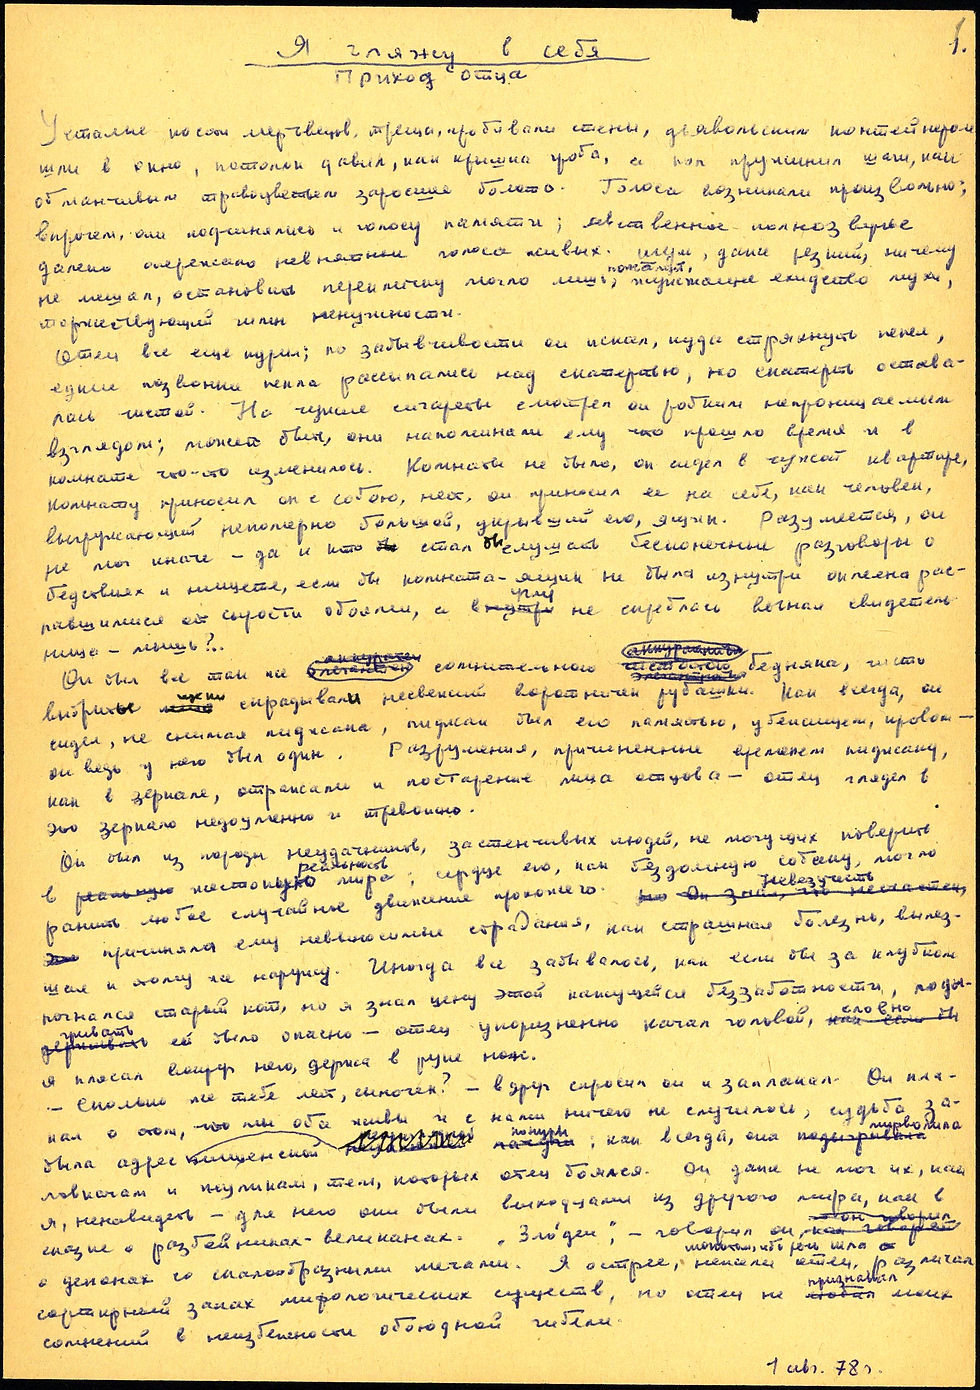 1.
Я гляжу в себя
Приход отца
Усталые носы мертвецов, треща, пробивали стены, дьявольским
шли в окно, потолок давил, как крышка гроба, а пол пружинил шаги, как
обманчивым травоцветьем заросшее болото. Голоса возникали произвольно;
впрочем, они подчинялись и голосу памяти; явственное полнозвучье
далеко опережало невнятные голоса живых. Шум, даже резкий, ничему
не мешал, остановить перекличку могло лишь, пожалуй, жужжащее ехидство мухи,
торжествующий гимн ненужности.
Отец все еще курил; по забывчивости он искал, куда стряхнуть пепел,
едкие позвонки пепла рассыпались над скатертью, но скатерть остава-
лась чистой. На чужие сигареты смотрел он робким непроницаемым
взглядом; может быть, они напоминали ему что прошло время и в
комнате что-то изменилось. Комнаты не было, он сидел в чужой квартире,
комнату приносил он с собою, нет, он приносил ее на себе, как человек,
выгружающий непомерно большой, укрывший его, ящик. Разумеется, он
не мог иначе – да и кто бы стал бы слушать бесконечные разговоры о
бедствиях и нищете, если бы комната-ящик не была изнутри оклеена рас-
павшимися от сырости обоями, а в углу не скреблась вечная свидетель-
ница – мышь?..
Он был все так же аккуратен сомнительного аккуратностью бедняка, чисто
выбритые щеки скрадывали несвежий воротничек рубашки. Как всегда, он
сидел, не снимая пиджака, пиджак был его памятью, убежищем, кровом –
он ведь у него был один. Разрушения, причиненные временем пиджаку,
как в зеркале, отражали и постарение лица отцова – отец глядел в
это зеркало недоуменно и тревожно.
Он был из породы неудачников, застенчивых людей, не могущих поверить
в реальную реальность жестокую мира; сердце его, как бездомную собаку, могло
ранить любое случайное движение прохожего. но Он знал, что несчастен, Невезучесть
это причиняла ему невыносимые страдания, как страшная болезнь, вылез-
шая к тому же наружу. Иногда все забывалось, как если бы за клубком
погнался старый кот, но я знал цену этой кажущейся беззаботности, поды-
грывать ей было опасно – отец укоризненно качал головой, как если бы словно
я плясал вокруг него, держа в руке нож.
– Сколько же тебе лет, сыночек? – вдруг спросил он и заплакал. Он пла-
кал о том, что мы оба живы и с нами ничего не случилось, судьба за-
была адрес нищенской; как всегда, она подыгрывала мирволила
ловкачам и жуликам, тем, которых отец боялся. Он даже не мог их, как
я, ненавидеть – для него они были выходцами из другого мира, как в
сказке о разбойниках-великанах. „Злодеи“, – говорил он, как говорят
о демонах со скалообразными мечами. Я острее, нежели отец, различал
сортирный запах мифологических существ, но отец не любил признавал моих
сомнений в неизбежности обоюдной гибели.
1 авг. 78 г.